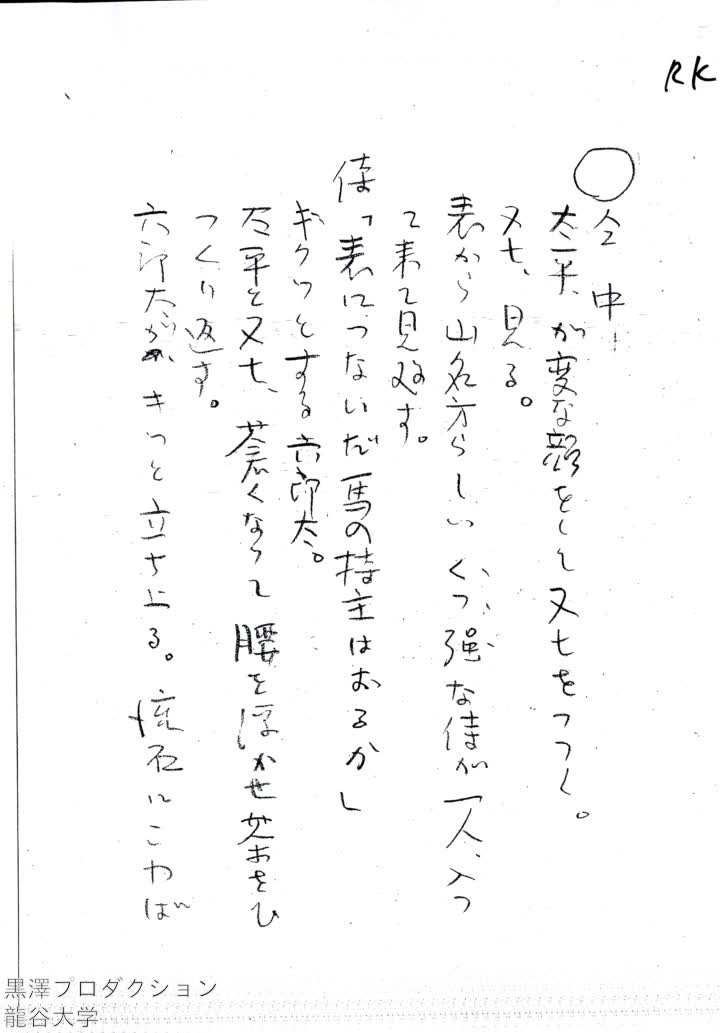 RK
○仝 中
太平、が変な顔をして又七をつつく。
又七、見る。
表から山名方らしいくつ強な侍が一人、入つ
て来て見廻す。
侍「表につないだ馬の持主はおるか」
ギクッとする六郎太。
太平と又七、蒼くなつて腰を浮かせ茶わんをひ
つくり返す。
六郎太が、キッと立ち上る。流石にこわば
黒澤プロダクション
龍谷大学